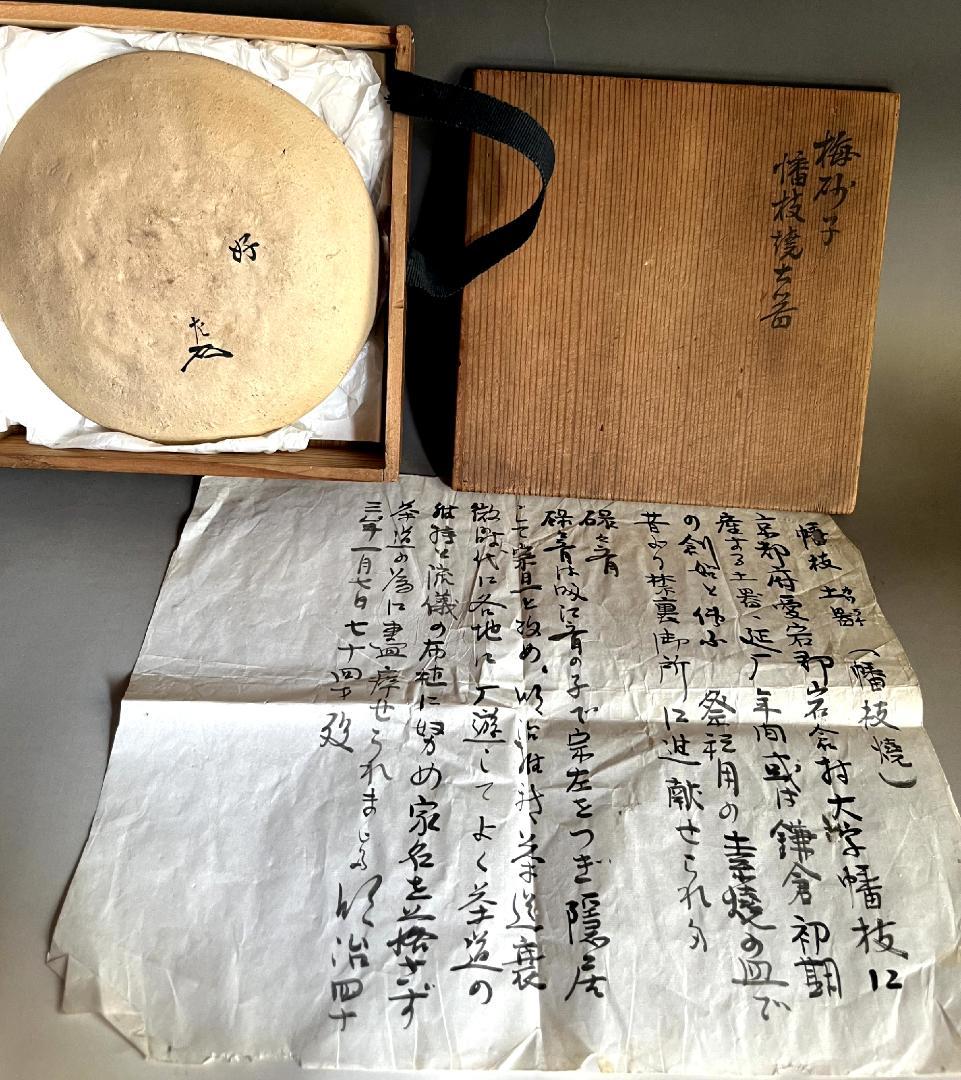 梅砂子
幡枝焼土器
好
左
幡枝土器(幡枝焼)
京都府愛宕郡岩倉村大字幡枝に
産する土器、延厂年間或は鎌倉初期
の創始と伝ふ 祭祀用の素焼の皿で
昔より禁裏御所に進献せられ
碌々斎
碌々斎は吸江斎の子で宗左をつぎ隠居
して宗旦と改め、明治維新茶道衰
微時代に各地に厂遊してよく茶道の
維持と流儀の布植に努め家名を落さず
茶道の為に盡瘁せられました 明治四十
三年一月七日七十四才歿